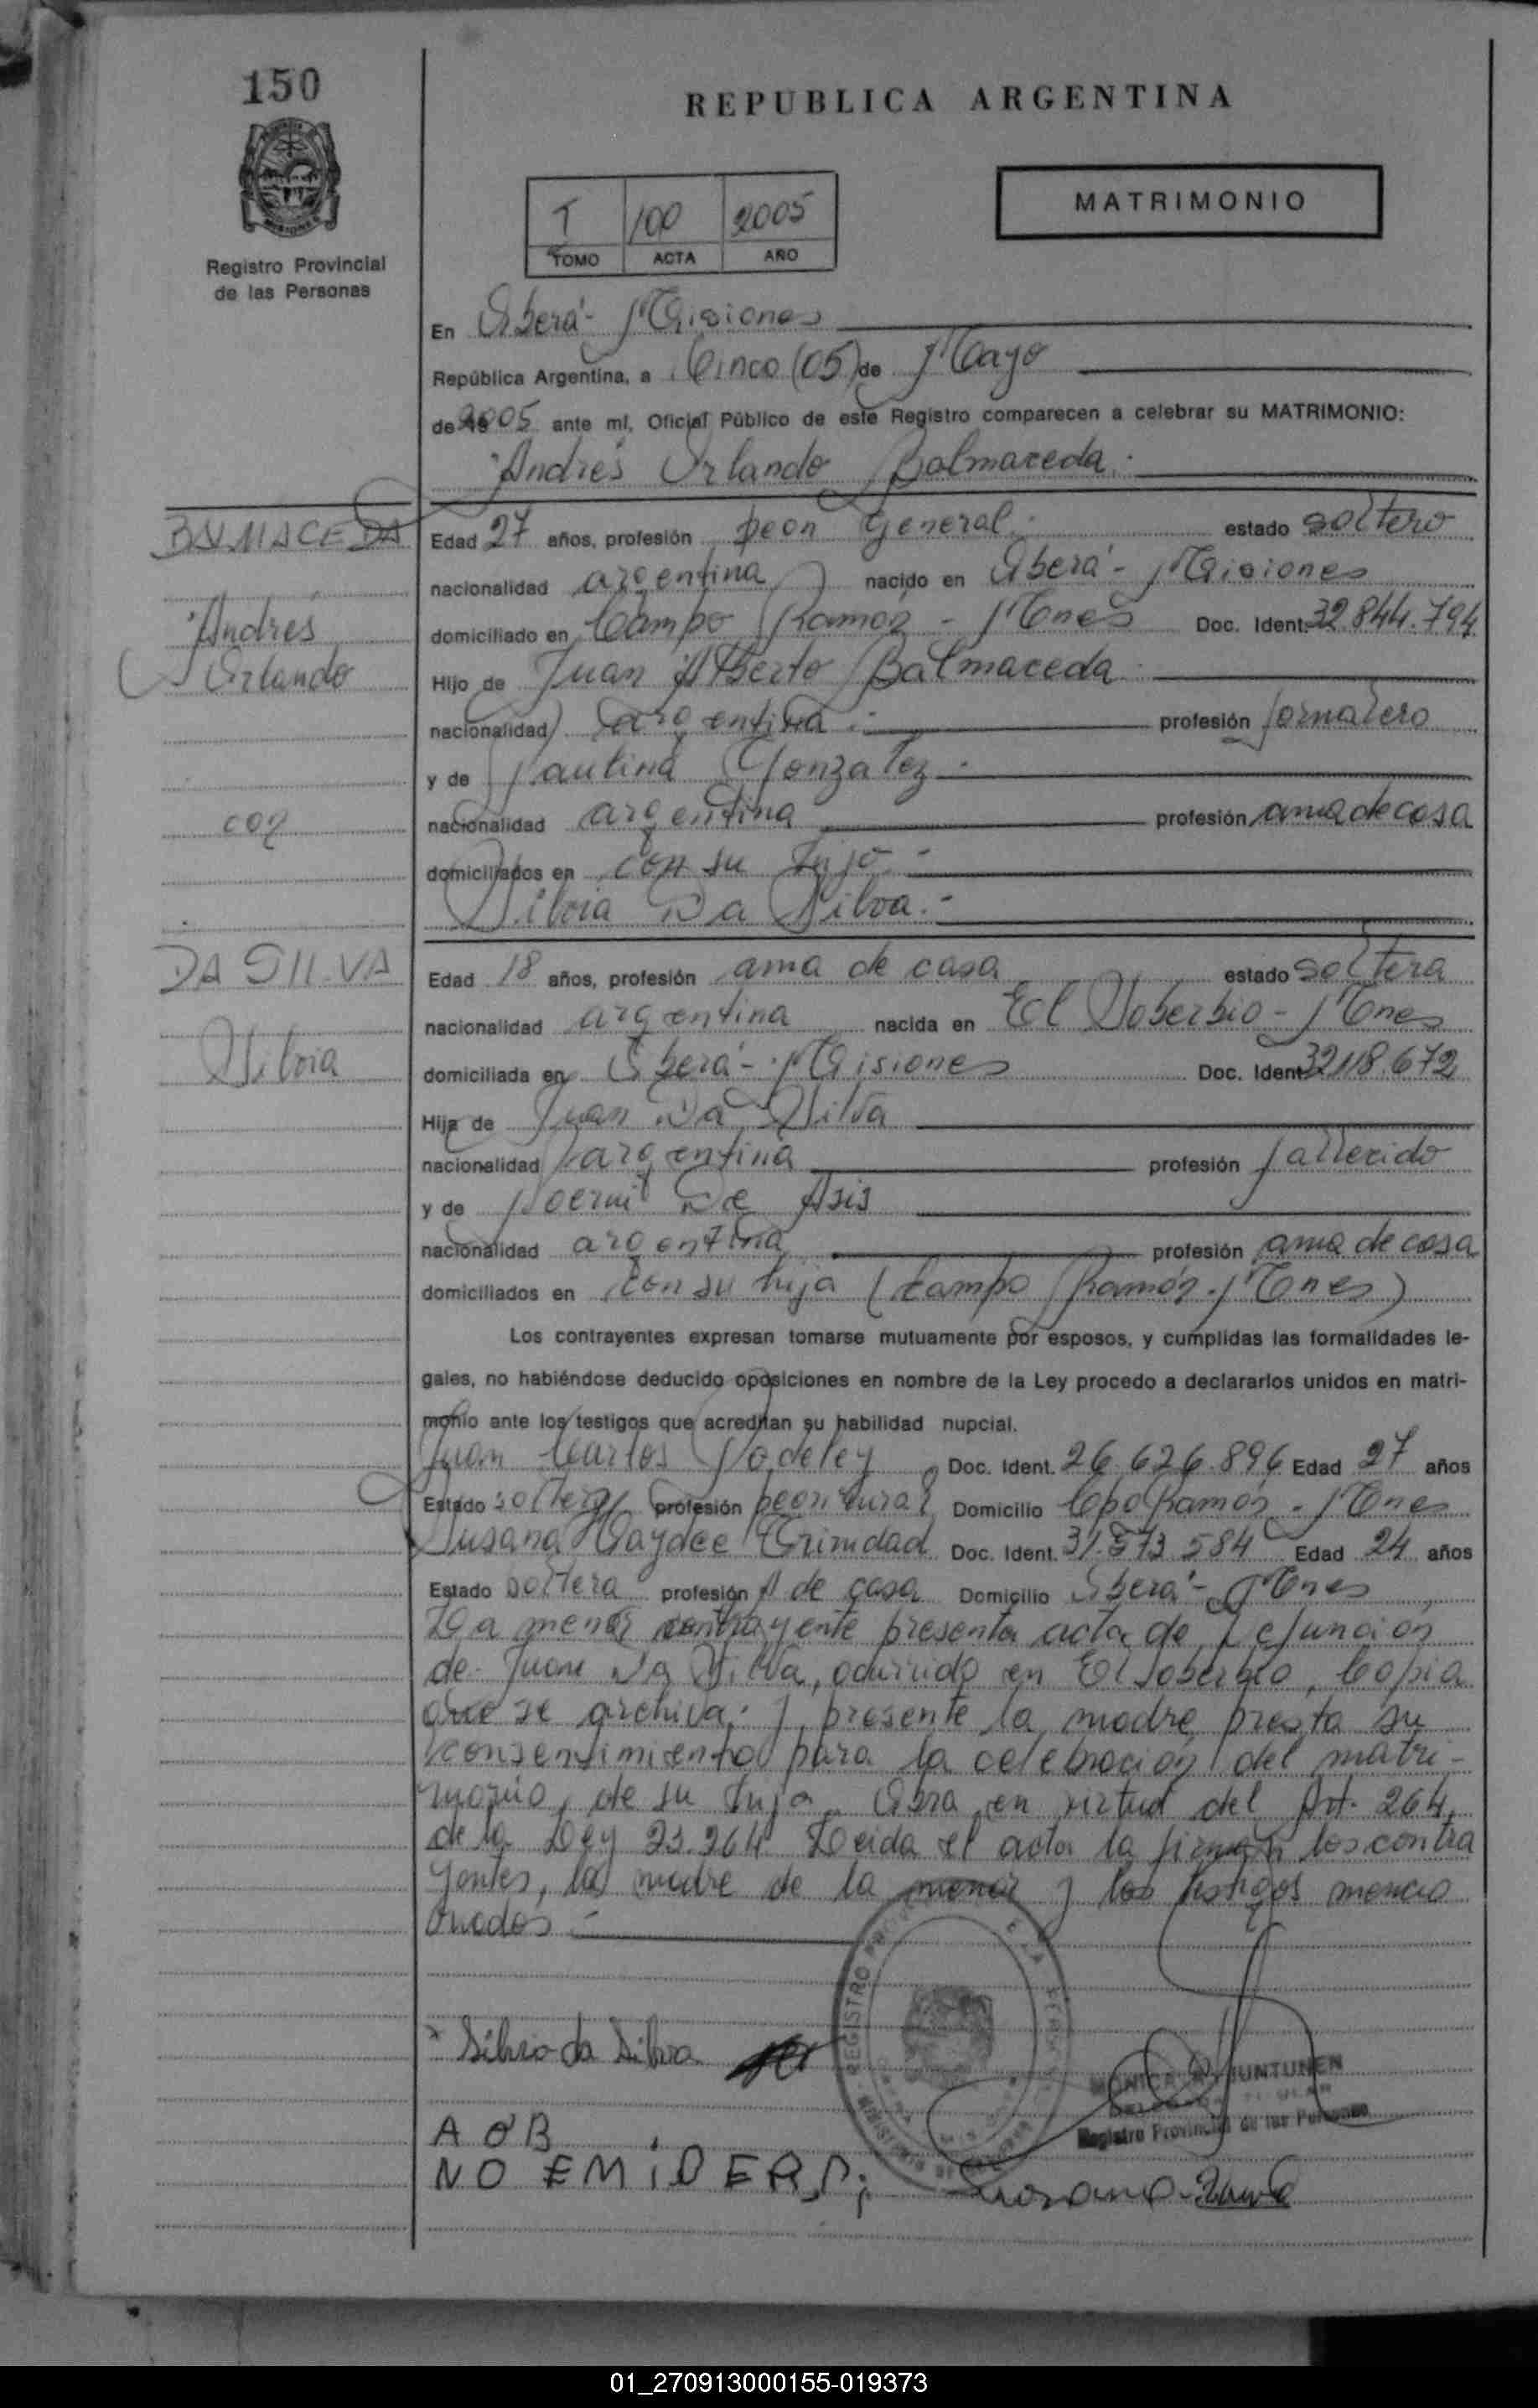 150
REPUBLICA ARGENTINA
Registro Provincial
de las Personas
T 100 2005
TOMO ACTA AÑO
MATRIMONIO
En Oberá - Misiones
República Argentina, a Cinco (05) de Mayo
de 2005 ante mí, Oficial Público de este Registro comparecen a celebrar su MATRIMONIO:
Andrés Orlando Balmaceda.
BALMACEDA
Andrés
Orlando
con
DA SILVA
Silvia
Edad 27 años, profesión peon general. estado soltero
nacionalidad argentina nacido en Oberá - Misiones
domiciliado en Campo Ramón - Mnes Doc. Ident. 32.844.794
Hijo de Juan Alberto Balmaceda.
nacionalidad argentina.- profesión Jornalero
y de Paulina Gonzalez.-
nacionalidad argentina profesión ama de casa
domiciliados en con su hijo.-
Silvia Da Silva.-
Edad 18 años, profesión ama de casa estado soltera
nacionalidad argentina nacida en El Soberbio - Mnes
domiciliada en Oberá - Misiones Doc. Ident. 32.118.672
Hija de Juan Da Silva
nacionalidad argentina profesión fallecido
y de Noemi De Asis
nacionalidad argentina profesión ama de casa
domiciliados en con su hija (Campo Ramón - Mnes)
Los contrayentes expresan tomarse mutuamente por esposos, y cumplidas las formalidades le-
gales, no habiéndose deducido oposiciones en nombre de la Ley procedo a declararlos unidos en matri-
monio ante los testigos que acreditan su habilidad nupcial.
Juan Carlos Doc. Ident. 26.626.896 Edad 27 años
Estado soltero profesión peon rural Domicilio Cpo Ramón - Mnes
Susana Haydee Trinidad Doc. Ident. 31.573.584 Edad 24 años
Estado soltera profesión A de casa Domicilio Oberá - Mnes
La menor contrayente presenta acta de defunción
de Juan Da Silva, ocurrido en El Soberbio, Copia
que se archiva; y presente la madre presta su
consentimiento para la celebración del matri-
monio, de su hija. Obra en virtud del Art. 264,
de la Ley 23.264 Leida el acta la firman los contra
yentes, la madre de la menor y los testigos mencio
nados.-
Silvia da Silva
MONICA JUNTUNEN
Registro Provincial de las Personas
A O B
NO EMi DE
01_270913000155-019373